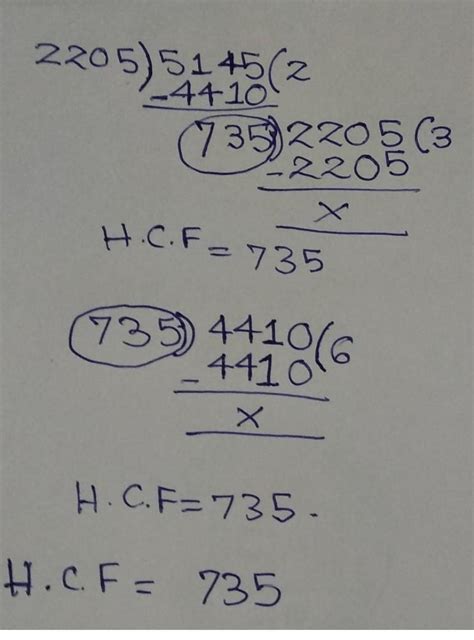 2205)5145(2
-4410
735)2205(3
-2205
x
H.C.F = 735
735) 4410(6
-4410
x
H.C.F=735.
H.C.F = 735